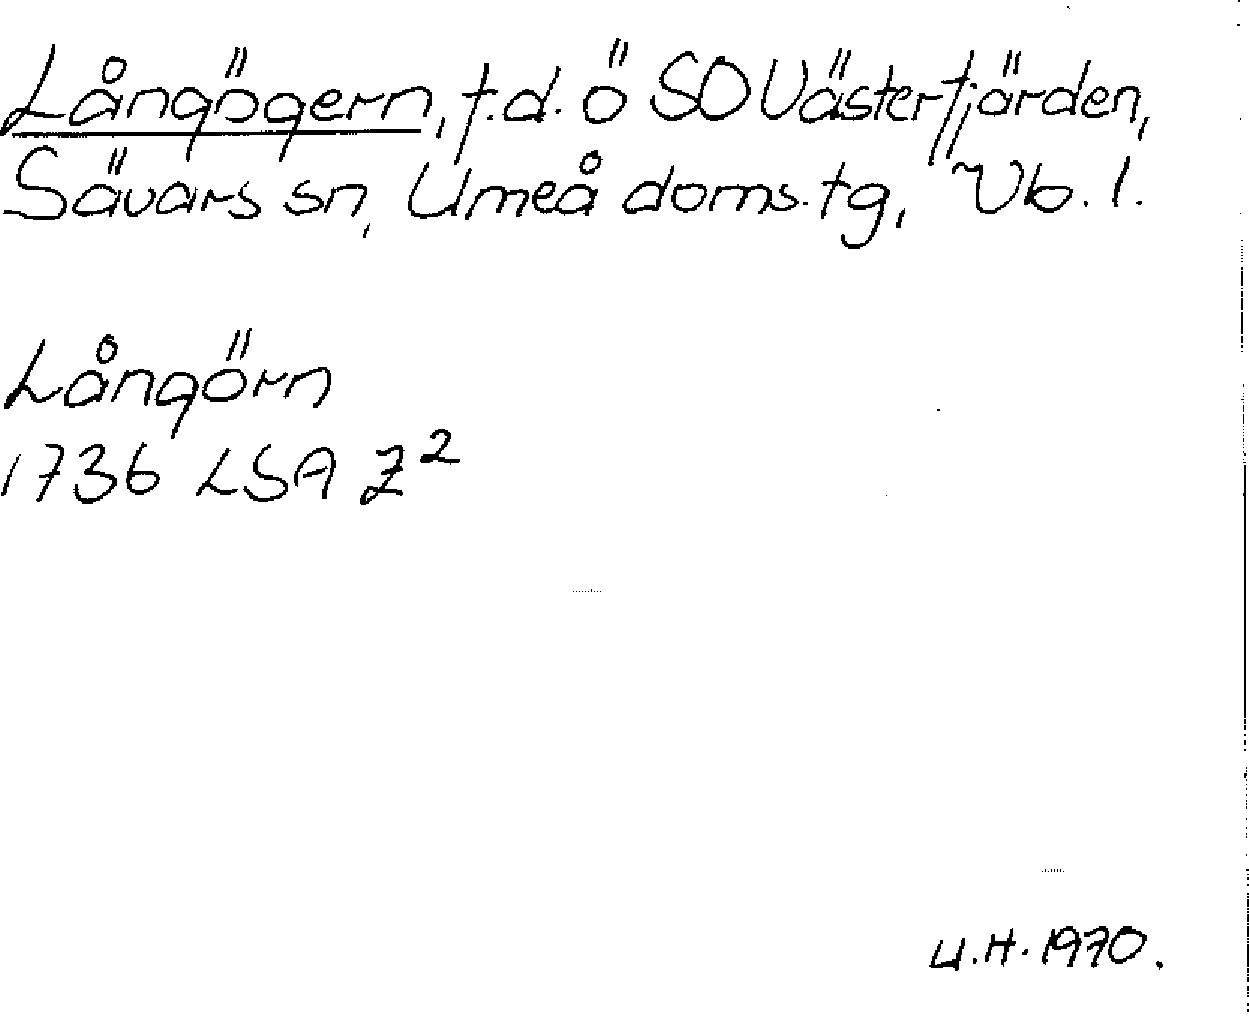 Långögern, f.d. ö SO Västerfjärden,
Sävars sn, Umeå doms. tg, Vb. l.
Långörn
1736 LSA Z²
U.H. 1970.